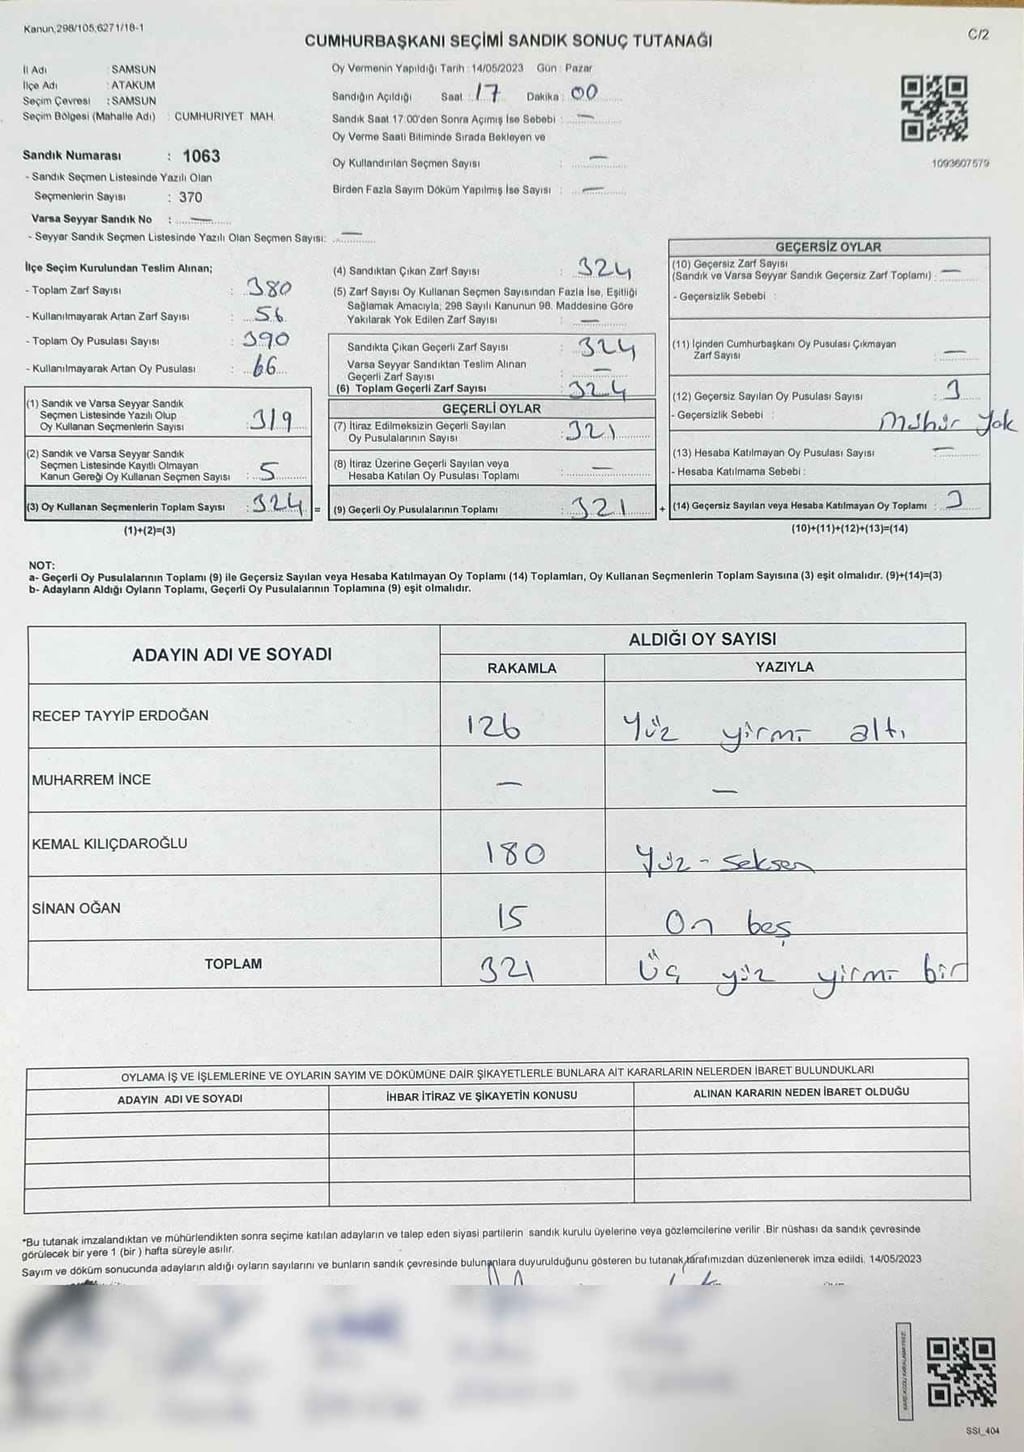 Kanun,298/105,6271/18-1
C/2
CUMHURBAŞKANI SEÇİMİ SANDIK SONUÇ TUTANAĞI
İl Adı : SAMSUN
İlçe Adı : ATAKUM
Seçim Çevresi : SAMSUN
Seçim Bölgesi (Mahalle Adı) : CUMHURIYET MAH.
Sandık Numarası : 1063
- Sandık Seçmen Listesinde Yazılı Olan
Seçmenlerin Sayısı : 370
Varsa Seyyar Sandık No : —
- Seyyar Sandık Seçmen Listesinde Yazılı Olan Seçmen Sayısı: —
Oy Vermenin Yapıldığı Tarih : 14/05/2023 Gün : Pazar
Sandığın Açıldığı Saat : 17 Dakika : 00
Sandık Saat 17:00'den Sonra Açımış İse Sebebi : —
Oy Verme Saati Bitiminde Sırada Bekleyen ve
Oy Kullandırılan Seçmen Sayısı : —
Birden Fazla Sayım Döküm Yapılmış İse Sayısı : —
1093607579
İlçe Seçim Kurulundan Teslim Alınan;
- Toplam Zarf Sayısı : 380
- Kullanılmayarak Artan Zarf Sayısı : 56
- Toplam Oy Pusulası Sayısı : 390
- Kullanılmayarak Artan Oy Pusulası : 66
(1) Sandık ve Varsa Seyyar Sandık
Seçmen Listesinde Yazılı Olup
Oy Kullanan Seçmenlerin Sayısı : 319
(2) Sandık ve Varsa Seyyar Sandık
Seçmen Listesinde Kayıtlı Olmayan
Kanun Gereği Oy Kullanan Seçmen Sayısı : 5
(3) Oy Kullanan Seçmenlerin Toplam Sayısı : 324 =
(1)+(2)=(3)
(4) Sandıktan Çıkan Zarf Sayısı : 324
(5) Zarf Sayısı Oy Kullanan Seçmen Sayısından Fazla İse, Eşitliği
Sağlamak Amacıyla, 298 Sayılı Kanunun 98. Maddesine Göre
Yakılarak Yok Edilen Zarf Sayısı : —
Sandıkta Çıkan Geçerli Zarf Sayısı : 324
Varsa Seyyar Sandıktan Teslim Alınan
Geçerli Zarf Sayısı : —
(6) Toplam Geçerli Zarf Sayısı : 324
GEÇERLİ OYLAR
(7) İtiraz Edilmeksizin Geçerli Sayılan
Oy Pusulalarının Sayısı : 321
(8) İtiraz Üzerine Geçerli Sayılan veya
Hesaba Katılan Oy Pusulası Toplamı : —
(9) Geçerli Oy Pusulalarının Toplamı : 321 +
GEÇERSİZ OYLAR
(10) Geçersiz Zarf Sayısı
(Sandık ve Varsa Seyyar Sandık Geçersiz Zarf Toplamı) : —
- Geçersizlik Sebebi :
(11) İçinden Cumhurbaşkanı Oy Pusulası Çıkmayan
Zarf Sayısı : —
(12) Geçersiz Sayılan Oy Pusulası Sayısı : 3
- Geçersizlik Sebebi : Mühür Yok
(13) Hesaba Katılmayan Oy Pusulası Sayısı : —
- Hesaba Katılmama Sebebi :
(14) Geçersiz Sayılan veya Hesaba Katılmayan Oy Toplamı : 3
(10)+(11)+(12)+(13)=(14)
NOT:
a- Geçerli Oy Pusulalarının Toplamı (9) ile Geçersiz Sayılan veya Hesaba Katılmayan Oy Toplamı (14) Toplamları, Oy Kullanan Seçmenlerin Toplam Sayısına (3) eşit olmalıdır. (9)+(14)=(3)
b- Adayların Aldığı Oyların Toplamı, Geçerli Oy Pusulalarının Toplamına (9) eşit olmalıdır.
ADAYIN ADI VE SOYADI
ALDIĞI OY SAYISI
RAKAMLA YAZIYLA
RECEP TAYYİP ERDOĞAN 126 Yüz yirmi altı
MUHARREM İNCE — —
KEMAL KILIÇDAROĞLU 180 Yüz - seksen
SİNAN OĞAN 15 On beş
TOPLAM 321 Üç yüz yirmi bir
OYLAMA İŞ VE İŞLEMLERİNE VE OYLARIN SAYIM VE DÖKÜMÜNE DAİR ŞİKAYETLERLE BUNLARA AİT KARARLARIN NELERDEN İBARET BULUNDUKLARI
ADAYIN ADI VE SOYADI İHBAR İTİRAZ VE ŞİKAYETİN KONUSU ALINAN KARARIN NEDEN İBARET OLDUĞU
*Bu tutanak imzalandıktan ve mühürlendikten sonra seçime katılan adayların ve talep eden siyasi partilerin sandık kurulu üyelerine veya gözlemcilerine verilir .Bir nüshası da sandık çevresinde
görülecek bir yere 1 (bir ) hafta süreyle asılır.
Sayım ve döküm sonucunda adayların aldığı oyların sayılarını ve bunların sandık çevresinde bulunanlara duyurulduğunu gösteren bu tutanak tarafımızdan düzenlenerek imza edildi. 14/05/2023
SSI_404